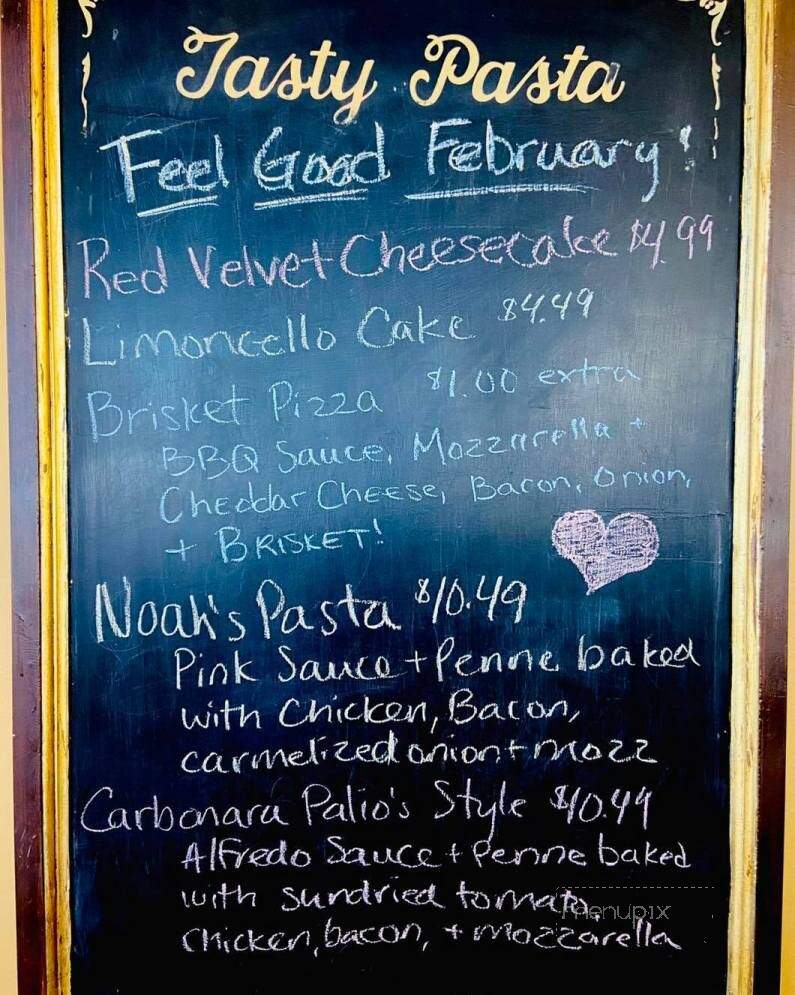 Tasty Pasta
Feel Good February!
Red Velvet Cheesecake $4.99
Limoncello Cake $4.49
Brisket Pizza $1.00 extra
BBQ Sauce, Mozzarella +
Cheddar Cheese, Bacon, Onion,
+ BRISKET!
Noah's Pasta $10.49
Pink Sauce + Penne baked
with Chicken, Bacon,
carmelized onion + mozz
Carbonara Palio's Style $10.49
Alfredo Sauce + Penne baked
with sundried tomato,
chicken, bacon, + mozzarella
menupix